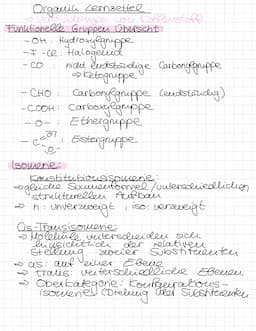 Organik Lernzettel
→ Verbindungen von Kohlenstoff
Funktionelle Gruppen Übersicht
- OH : Hydroxylgruppe
- F - Cl : Halogenid
- CO : nicht endständige Carbonylgruppe
⇒ Ketogruppe
- CHO : Carbonylgruppe (endständig)
- COOH : Carboxylgruppe
- O - : Ethergruppe
- C : Estergruppe
Isomerie:
Konstitutionsisomerie:
⇒ gleiche Summenformel / unterschiedlicher
strukturellen Aufbau
⇒ n : unverzweigt , iso : verzweigt
Cis-Transisomerie:
⇒ Moleküle unterscheiden sich
hinsichtlich der relativen
Stellung zweier Substituenten
⇒ cis : auf einer Ebene
⇒ trans : unterschiedliche Ebenen
⇒ Oberkategorie : Konfigurations-
isomerie (Stellung der Substituenten